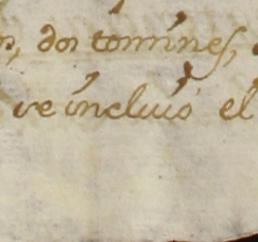 dos tomines,
se incluió el